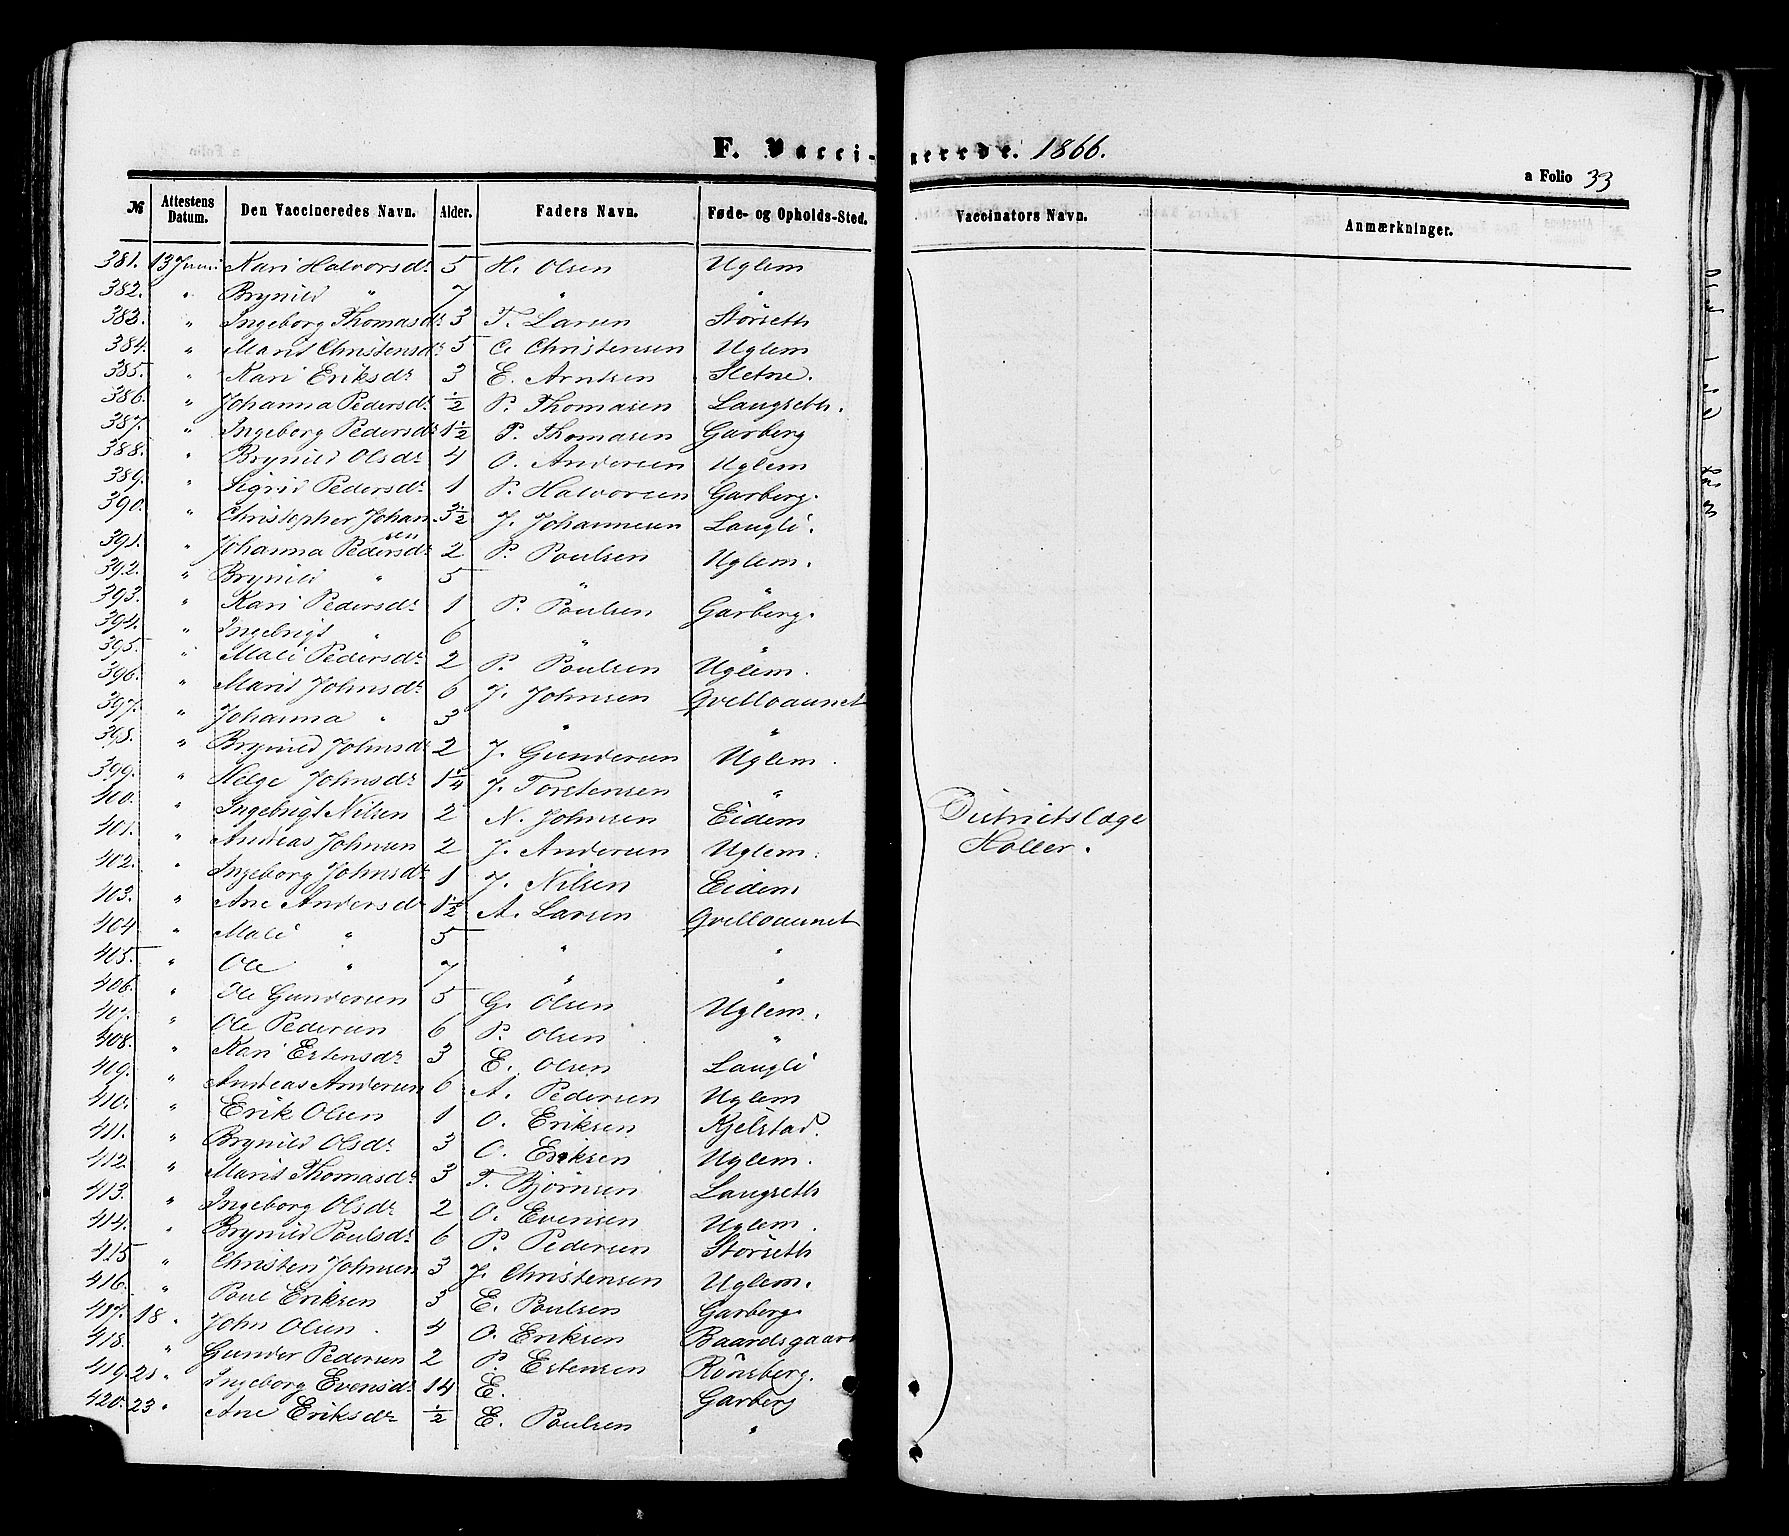 F. Vacci-nerede. 1866.
a Folio 33
№ Attestens Datum. Den Vaccineredes Navn. Alder. Faders Navn. Føde- og Opholds-Sted. Vaccinators Navn. Anmærkninger.
381. 13 Juni Kari Halvorsdr 5 H. Olsen Uglem
382. " Brynild " 7 " "
383. " Ingeborg Thomasdr 3 T. Larsen Störseth
384. " Marit Christensdr 5 C. Christensen Uglem
385. " Kari Eriksdr 3 E. Arntsen Sletne.
386. " Johanna Pedersdr 1/2 P. Thomasen Langseth.
387. " Ingeborg Pedersdr 1 1/2 P. Thomasen Garberg
388. " Brynild Olsdr 4 O. Andersen Uglem
389. " Sigrid Pedersdr 1 P. Halvorsen Garberg.
390. " Christopher Johansen 3 1/2 J. Johannesen Langli.
391. " Johanna Pedersdr 2 P. Poulsen Uglem.
392. " Brynild " 5 " "
393. " Kari Pedersdr 1 P. Poulsen Garberg.
394. " Ingebrigt " 6 " "
395. " Mali Pedersdr 2 P. Poulsen Uglem.
396. " Marit Johnsdr 6 J. Johnsen Qvelloaunet
397. " Johanna " 3 " "
398. " Brynild Johnsdr 2 J. Gundersen Uglem.
399. " Helge Johnsdr 1 1/4 J. Torstensen "
400. " Ingebrigt Nilsen 2 N. Johnsen Eidem
401. " Andreas Johnsen 2 J. Andersen Uglem.
402. " Ingeborg Johnsdr 1 J. Nilsen Eidem
403. " Ane Andersdr 1 1/2 A. Larsen Qvelloaunet
404 " Mali " 5 " "
405. " Ole " 7 " "
406. " Ole Gundersen 5 G. Olsen Uglem.
407. " Ole Pedersen 6 P. Olsen "
408. " Kari Estensdr 3 E. Olsen Langli
409. " Andreas Andersen 6 A. Pedersen Uglem
410. " Erik Olsen 1 O. Eriksen Kjelstad.
411. " Brynild Olsdr 3 O. Eriksen Uglem.
412. " Marit Thomasdr 3 T. Bjørnsen Langseth
413. " Ingeborg Olsdr 2 O. Evensen Uglem.
414. " Brynild Poulsdr 6 P. Pedersen Störseth
415 " Christen Johnsen 3 J. Christensen Uglem.
416. " Poul Eriksen 3 E. Poulsen Garberg
417. 18 " John Olsen 4 O. Eriksen Baardsgaard
418. " Gunder Pedersen 2 P. Estensen Rönsberg.
419. 21 " Ingeborg Evensdr 14 E. Garberg
420. 23 " Ane Eriksdr 1/2 E. Poulsen "
Districtslæge
Holler.